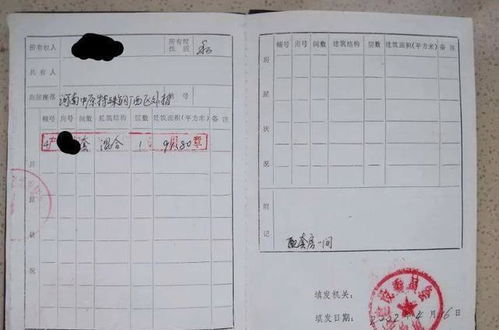 所有权人
所有权
性质
私
共有人
房屋座落
河南中原特殊钢厂西区外村
幢号 房号 间数 建筑结构 层数 建筑面积(平方米) 备注
套 混合 1
房
屋
状
况
幢号 房号 间数 建筑结构 层数 建筑面积(平方米) 备注
房
屋
状
况
附
记
配套房一间
填发机关:
填发日期:
4月16